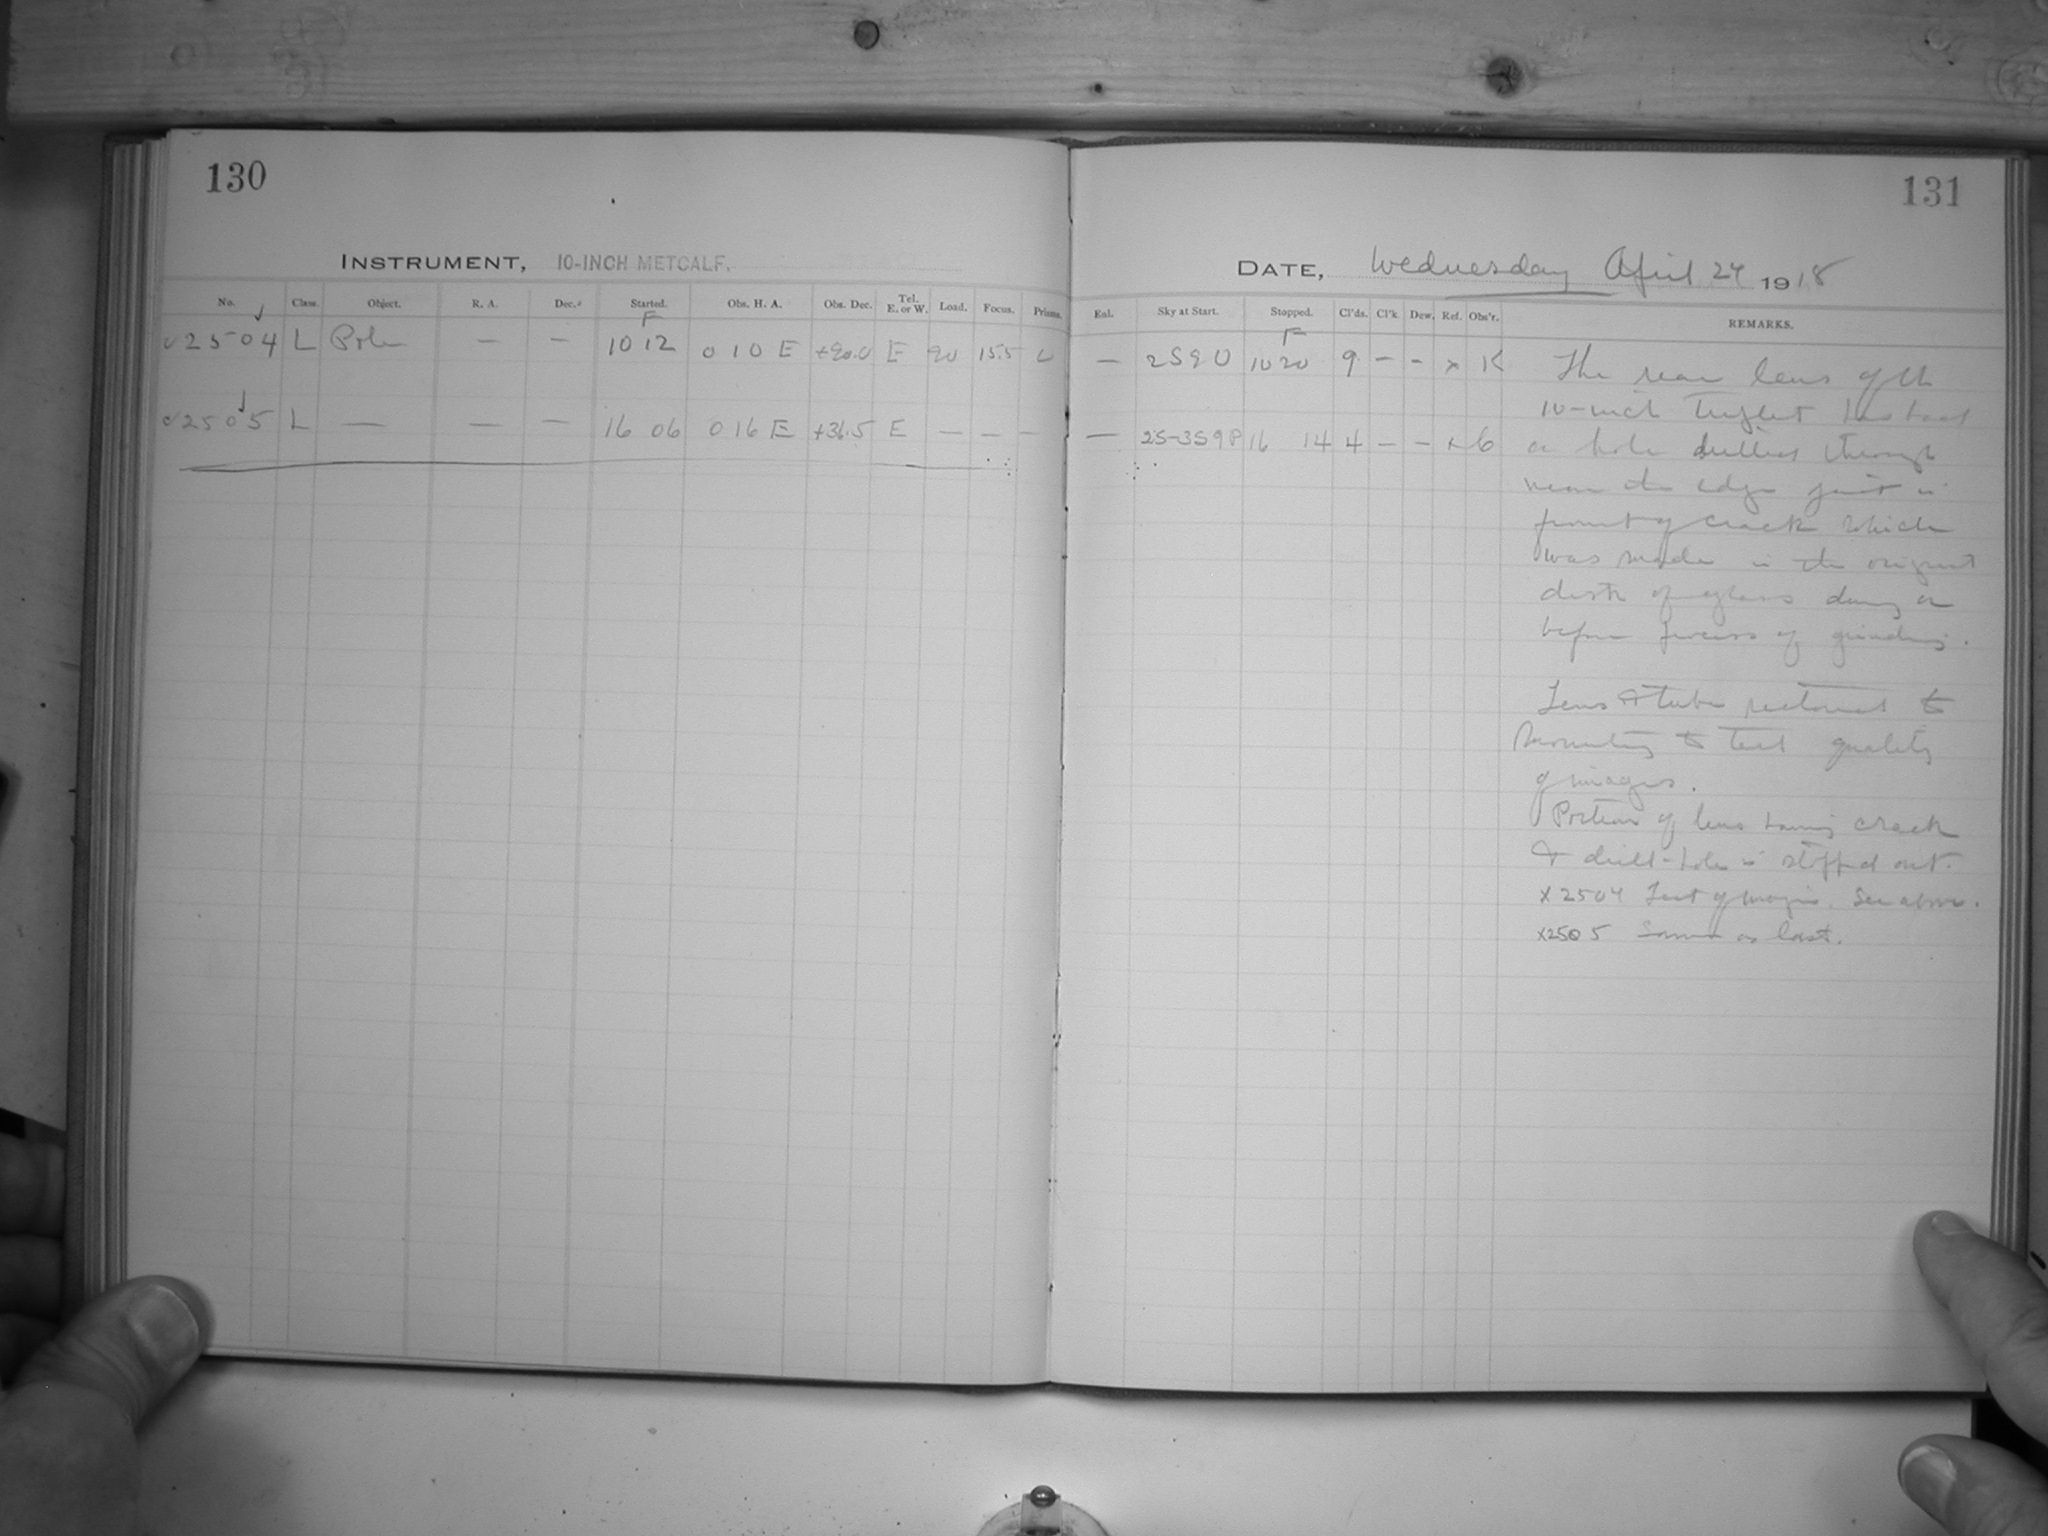 130
131
INSTRUMENT, 10-INCH METCALF.
DATE, Wednesday April 24 1918
No. Class. Object. R. A. Dec. Started. Obs. H. A. Obs. Dec. Tel. E. or W. Load. Focus. Prisms.
Enl. Sky at Start. Stopped. Cl'ds. Cl'k Dew. Ref. Obs'r. REMARKS.
F
F
2504 L Pole — — 10 12 0 10 E +90.0 E 90 15.5 0
— 2S90 10 20 9 – – × K
2505 L — — — 16 06 0 16 E +36.5 E — — —
— 2S-3S9P 16 14 4 – – × G
The rear lens of the
10-inch Triplet has had
a hole drilled through
near the edge just in
front of crack which
was made in the original
disk of glass during or
before process of grinding.
Lens & tube returned to
mounting to test quality
of images.
Portion of lens having crack
& drill-hole is stopped out.
×2504 Test of images. See above.
×2505 Same as last.